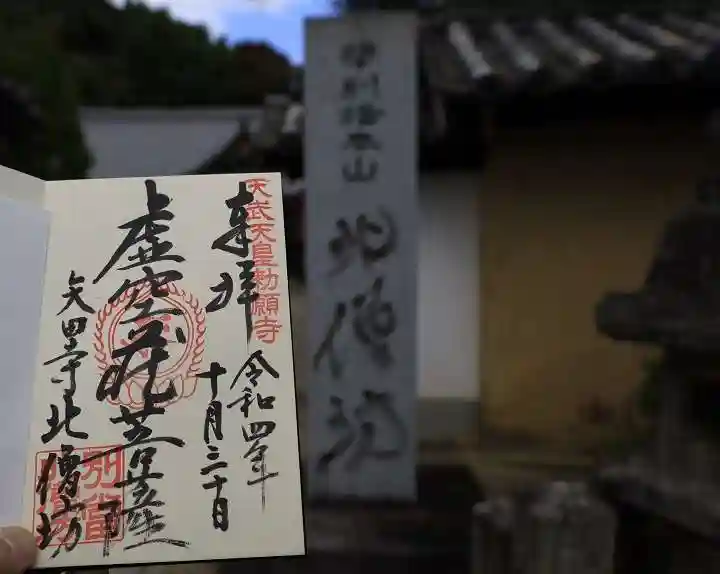 天武天皇勅願寺
奉拝
令和四年
十月三十日
虚空蔵菩薩
矢田寺北僧坊
別當
北僧坊